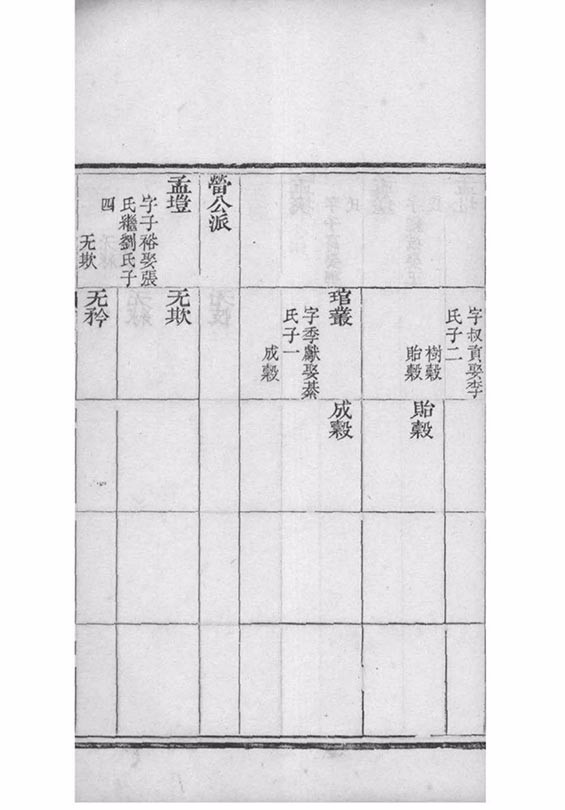 字叔貢娶李
氏子二
樹穀
貽穀
貽穀
琯叢
字季獻娶綦
氏子一
成穀
成穀
營公派
孟塏
字子裕娶張
氏繼劉氏子
四
无欺
无欺
无矜